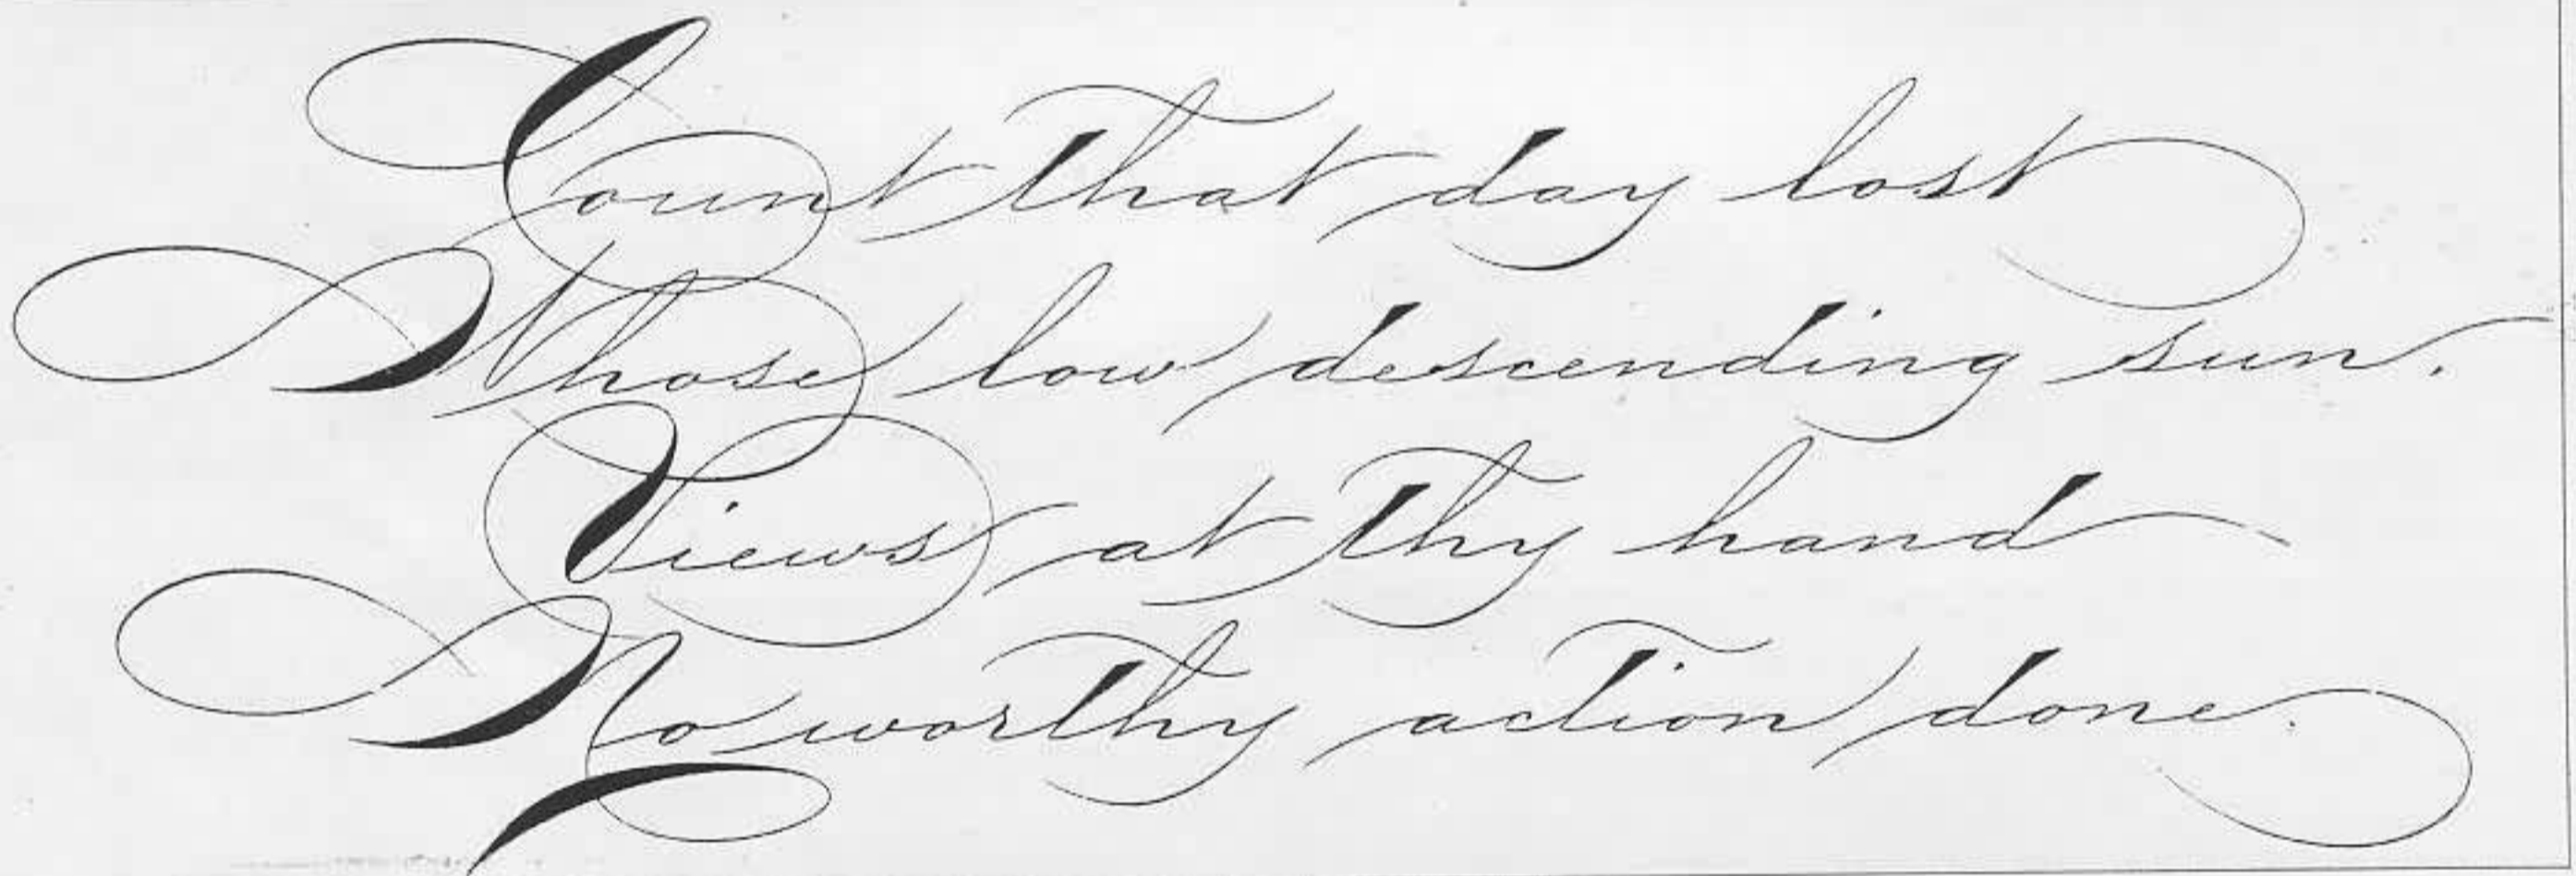 Count that day lost
Whose low descending sun.
Views at thy hand
No worthy action done.